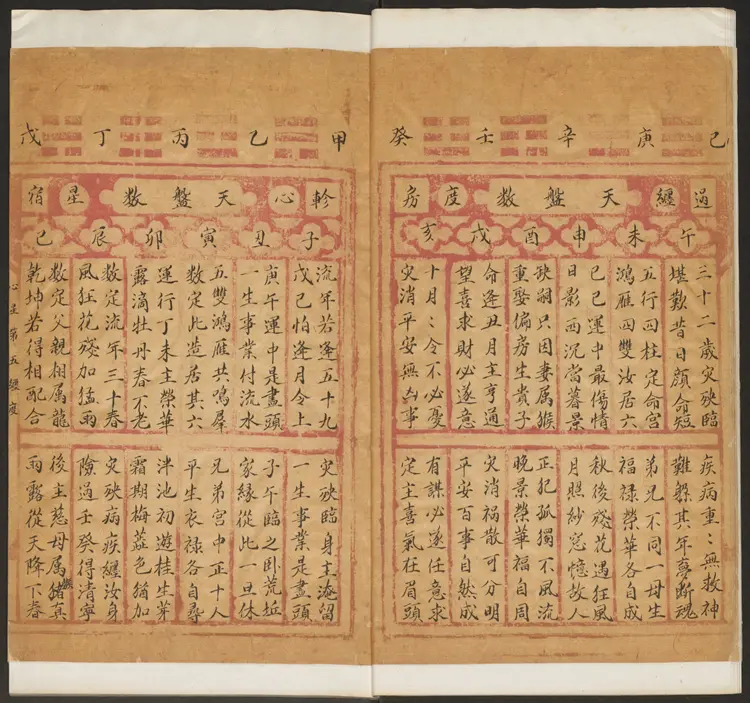 己 庚 辛 壬 癸
過 纏 天盤數 度 房
午 未 申 酉 戌 亥
三十二歲灾殃臨
堪歎昔日顏命短
疾病重〻無救神
難躲其年夢断魂
五行四柱定命宮
鴻雁四雙汝居六
弟兄不同一母生
福禄榮華各自成
己巳運中最傷情
日影西沉當暮景
秋後殘花遇狂風
月照紗窓憶故人
缺嗣只因妻属猴
重娶偏房生貴子
正犯孤獨不風流
晚景榮華福自周
命逢丑月主亨通
望喜求財必遂意
灾消禍散可分明
平安百事自然成
十月〻令不必憂
灾消平安無凶事
有謀必遂任意求
定主喜氣在眉頭
甲 乙 丙 丁 戊
軫 心 天盤數 星 宿
子 丑 寅 卯 辰 巳
流年若逢五十九
戊己怕逢月令上
灾殃臨身主淹留
一生事業是盡頭
庚午運中是盡頭
一生事業付流水
子午臨之卧荒坵
家縁從此一旦休
五雙鴻雁共鳴羣
數定此造居其六
兄弟宮中正十人
平生衣禄各自尋
運行丁未主榮華
露滴牡丹春不老
泮池初遊桂生芽
霜期梅蕋色猶加
數定流年三十春
風狂花殘加猛雨
灾殃病疾纏汝身
險過壬癸得清寧
數定父親相属龍
乾坤若得相配合
後主慈母属猪真
雨露從天降下春
心星第五纏度